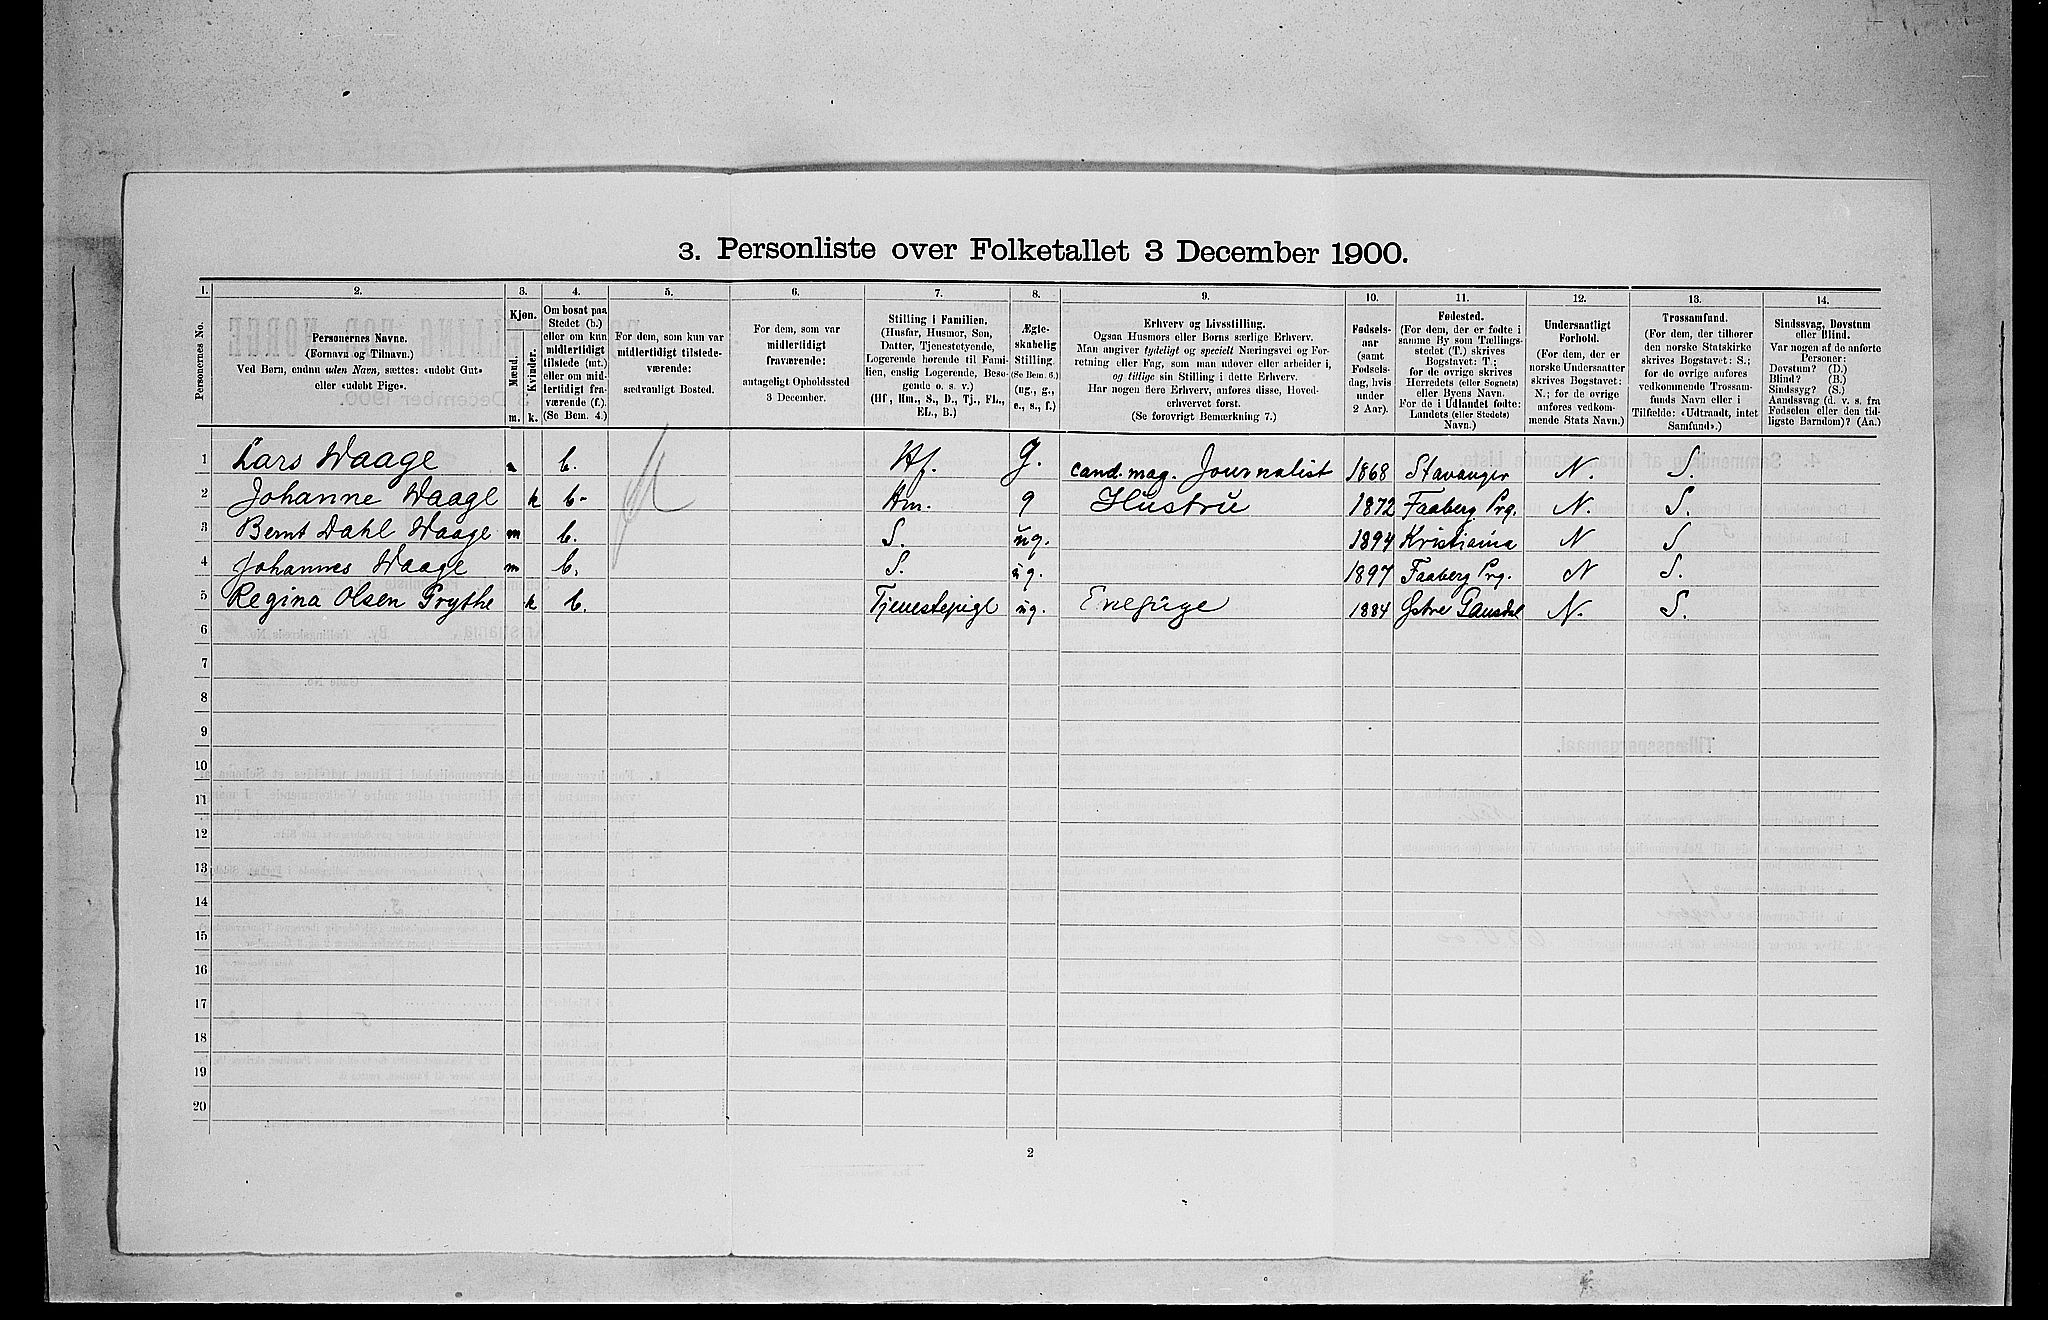 3. Personliste over Folketallet 3 December 1900.
1. 2. 3. 4. 5. 6. 7. 8. 9. 10. 11. 12. 13. 14.
Personernes No.
Personernes Navne.
(Fornavn og Tilnavn.)
Ved Børn, endnu uden Navn, sættes: «udøbt Gut»
eller «udøbt Pige».
Kjøn.
Mænd.
Kvinder.
m. k.
Om bosat paa
Stedet (b.)
eller om kun
midlertidigt
tilstede (mt.)
eller om mid-
lertidigt fra-
værende (f.).
(Se Bem. 4.)
For dem, som kun var
midlertidigt tilstede-
værende:
sædvanligt Bosted.
For dem, som var
midlertidigt
fraværende:
antageligt Opholdssted
3 December.
Stilling i Familien.
(Husfar, Husmor, Søn,
Datter, Tjenestetyende,
Logerende hørende til Fami-
lien, enslig Logerende, Besø-
gende o. s. v.)
(Hf, Hm., S., D., Tj., FL.,
EL., B.)
Ægte-
skabelig
Stilling.
(Se Bem. 6.)
(ug., g.,
e., s., f.)
Erhverv og Livsstilling.
Ogsaa Husmors eller Børns særlige Erhverv.
Man angiver tydeligt og specielt Næringsvei og For-
retning eller Fag, som man udøver eller arbeider i,
og tillige sin Stilling i dette Erhverv.
Har nogen flere Erhverv, anføres disse, Hoved-
erhvervet først.
(Se forøvrigt Bemærkning 7.)
Fødsels-
aar
(samt
Fødsels-
dag, hvis
under
2 Aar).
Fødested.
(For dem, der er fødte i
samme By som Tællings-
stedet (T.) skrives
Bogstavet: T.;
for de øvrige skrives
Herredets (eller Sognets)
eller Byens Navn.
For de i Udlandet fødte:
Landets (eller Stedets)
Navn.)
Undersaatligt
Forhold.
(For dem, der er
norske Undersaatter
skrives Bogstavet:
N.; for de øvrige
anføres vedkom-
mende Stats Navn.)
Trossamfund.
(For dem, der tilhører
den norske Statskirke
skrives Bogstavet: S.;
for de øvrige anføres
vedkommende Trossam-
funds Navn eller i
Tilfælde: «Udtraadt, intet
Samfund».)
Sindssvag, Døvstum
eller Blind.
Var nogen af de anførte
Personer:
Døvstum? (D.)
Blind? (B.)
Sindssyg? (S.)
Aandssvag (d. v. s. fra
Fødselen eller den tid-
ligste Barndom)? (Aa.)
1 Lars Waage b. Hf. g. cand. mag. Journalist 1868 Stavanger N. S.
2 Johanne Waage k b- Hm. g Hustru 1872 Faaberg Prg. N. S.
3 Bernt Dahl Waage m b. S. ug. 1894 Kristiania N S
4 Johannes Waage m b. S. ug. 1897 Faaberg Prg. N S.
5 Regina Olsen Grythe k b. Tjenestepige ug. Enepige 1884 Østre Gausdal N. S.
6
7
8
9
10
11
12
13
14
15
16
17
18
19
20
2